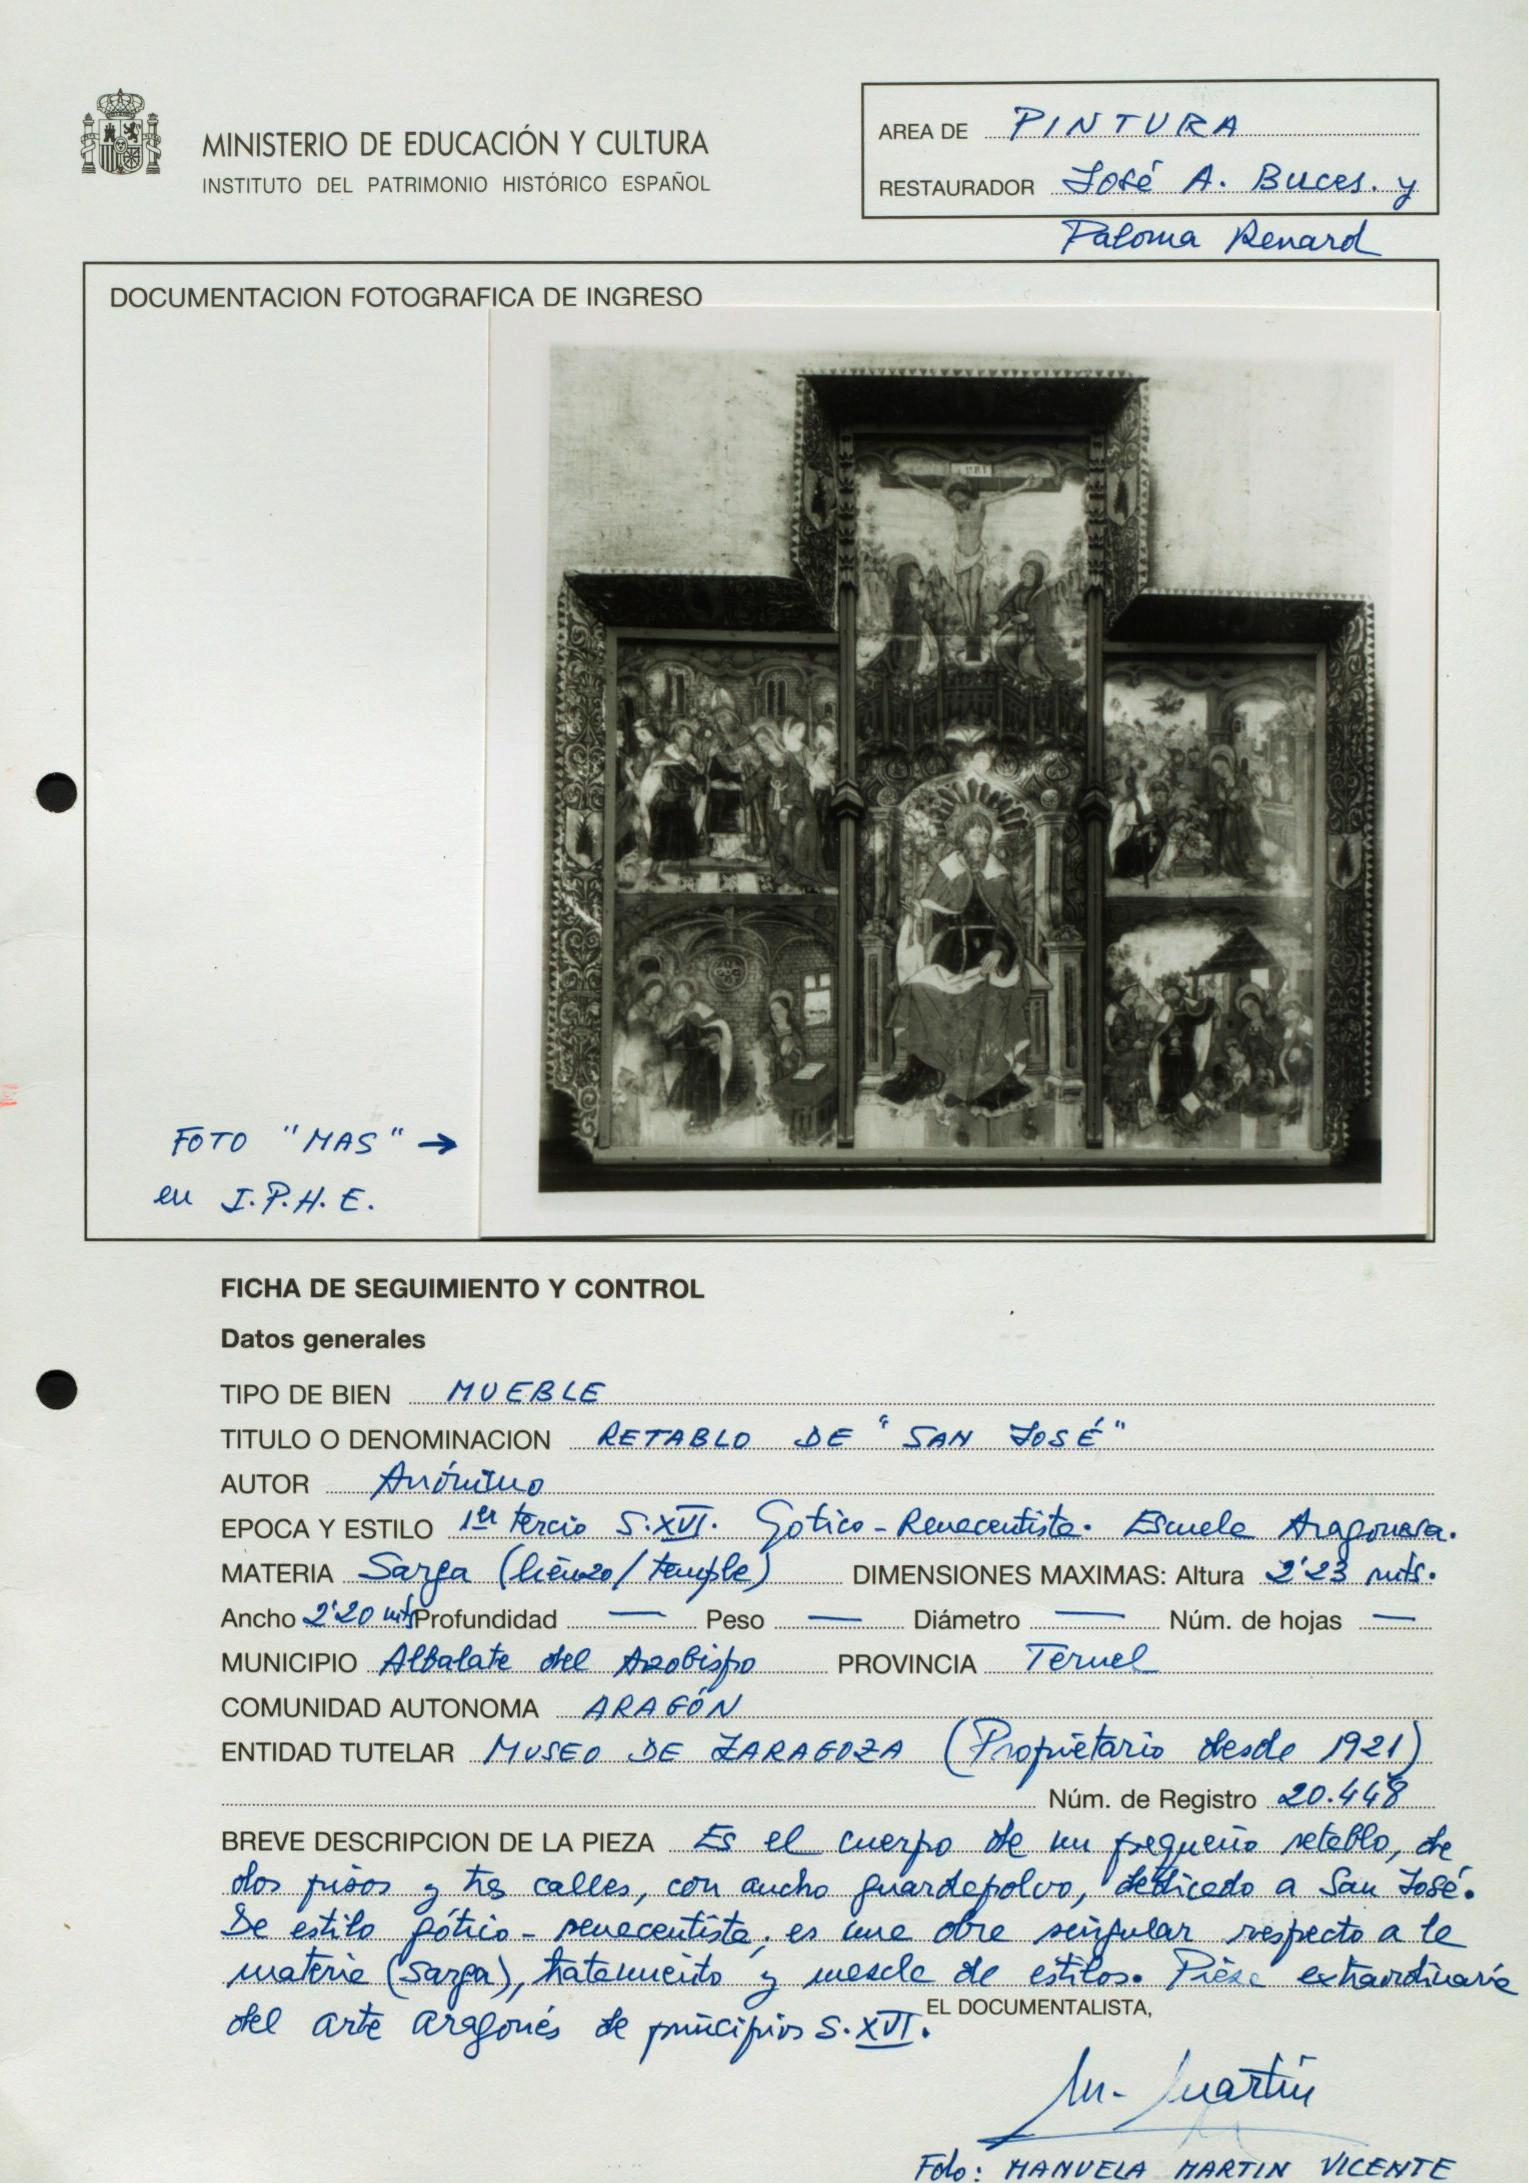 MINISTERIO DE EDUCACIÓN Y CULTURA
INSTITUTO DEL PATRIMONIO HISTÓRICO ESPAÑOL
AREA DE PINTURA
RESTAURADOR José A. Buces. y
Paloma Renard
DOCUMENTACION FOTOGRAFICA DE INGRESO
FOTO "MAS" →
en I.P.H.E.
FICHA DE SEGUIMIENTO Y CONTROL
Datos generales
TIPO DE BIEN MUEBLE
TITULO O DENOMINACION RETABLO DE "SAN JOSÉ"
AUTOR Anónimo
EPOCA Y ESTILO 1er tercio S.XVI. Gotico-Renacentista. Escuela Aragonesa.
MATERIA Sarga (lienzo/temple) DIMENSIONES MAXIMAS: Altura 2'23 mts.
Ancho 2'20 mts Profundidad — Peso — Diámetro — Núm. de hojas —
MUNICIPIO Albalate del Arzobispo PROVINCIA Teruel
COMUNIDAD AUTONOMA ARAGÓN
ENTIDAD TUTELAR MUSEO DE ZARAGOZA (Propietario desde 1921)
Núm. de Registro 20.448
BREVE DESCRIPCION DE LA PIEZA Es el cuerpo de un pequeño retablo, de
dos pisos y tres calles, con ancho guardapolvo, dedicado a San José.
De estilo gótico-renacentista, es una obra singular respecto a la
materia (Sarga), tratamiento y mezcla de estilos. Pieza extraordinaria
del arte aragonés de principios S.XVI.
EL DOCUMENTALISTA,
M. Martin
Fdo: MANUELA MARTIN VICENTE